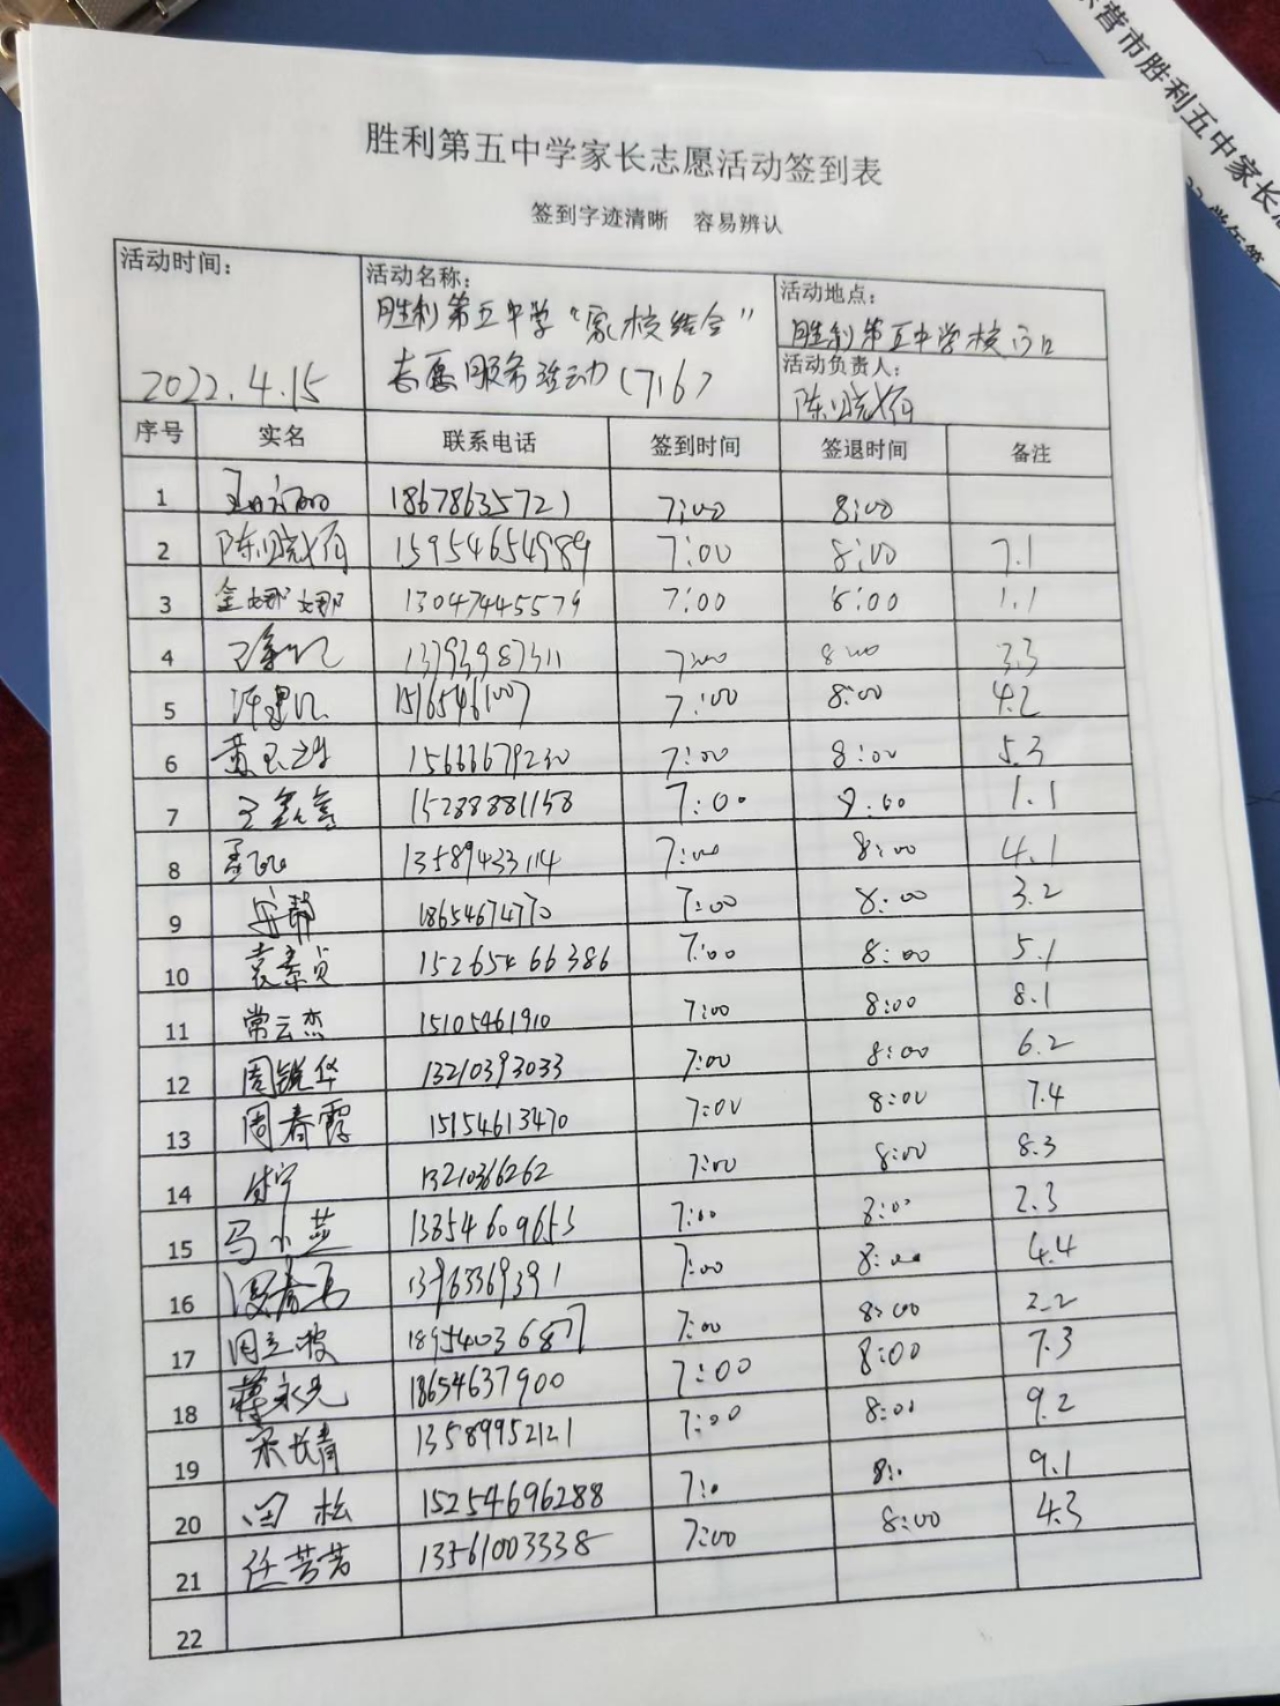 胜利第五中学家长志愿活动签到表
签到字迹清晰 容易辨认
活动时间: 2022.4.15
活动名称: 胜利第五中学“家校结合”
志愿服务活动(7.16)
活动地点: 胜利第五中学校门口
活动负责人: 陈晓
序号 实名 联系电话 签到时间 签退时间 备注
1 18678635721 7:00 8:00
2 陈晓 15954654989 7:00 8:00 7.1
3 金娜娜 13047445579 7:00 8:00 1.1
4 13793987311 7:00 8:00 3.3
5 15165461007 7:00 8:00 4.2
6 黄玉 15666679230 7:00 8:00 5.3
7 王鑫鑫 15288881158 7:00 8:00 1.1
8 13589433114 7:00 8:00 4.1
9 岳静 18654674770 7:00 8:00 3.2
10 袁素贞 15265466386 7:00 8:00 5.1
11 常云杰 15105461910 7:00 8:00 8.1
12 周锐华 13210393033 7:00 8:00 6.2
13 周春霞 15154613470 7:00 8:00 7.4
14 13210366262 7:00 8:00 8.3
15 马小芸 13854609653 7:00 8:00 2.3
16 13963369391 7:00 8:00 4.4
17 周立波 18954036877 7:00 8:00 2.2
18 蒋永光 18654637900 7:00 8:00 7.3
19 宋长青 13589952121 7:00 8:00 9.2
20 田松 15254696288 7:0 8:. 9.1
21 任芳芳 13561003338 7:00 8:00 4.3
22
营市胜利五中家长
学年第